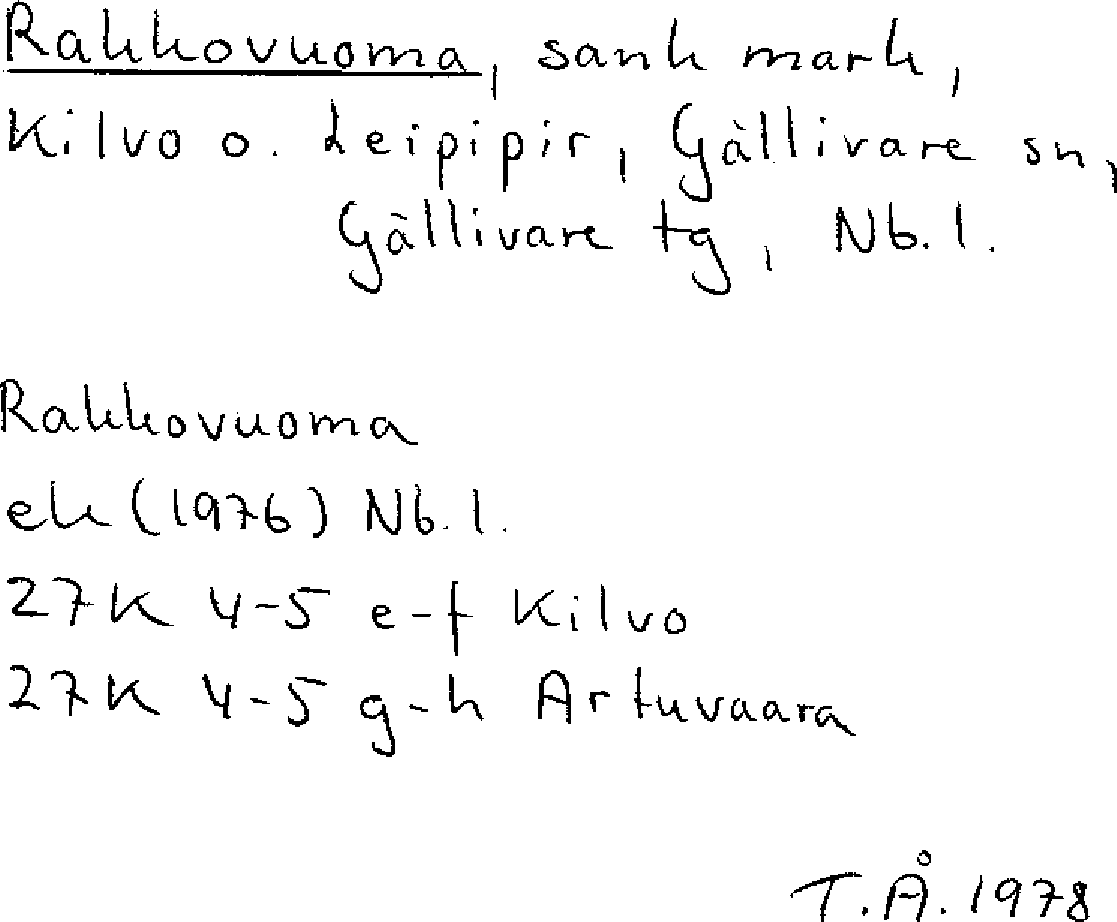 Rakkovuoma, sank mark,
Kilvo o. Leipipir, Gällivare sn,
Gällivare tg, Nb. l.
Rakkovuoma
ek (1976) Nb. l.
27K 4-5 e-f Kilvo
27K 4-5 g-h Artuvaara
T.Å. 1978